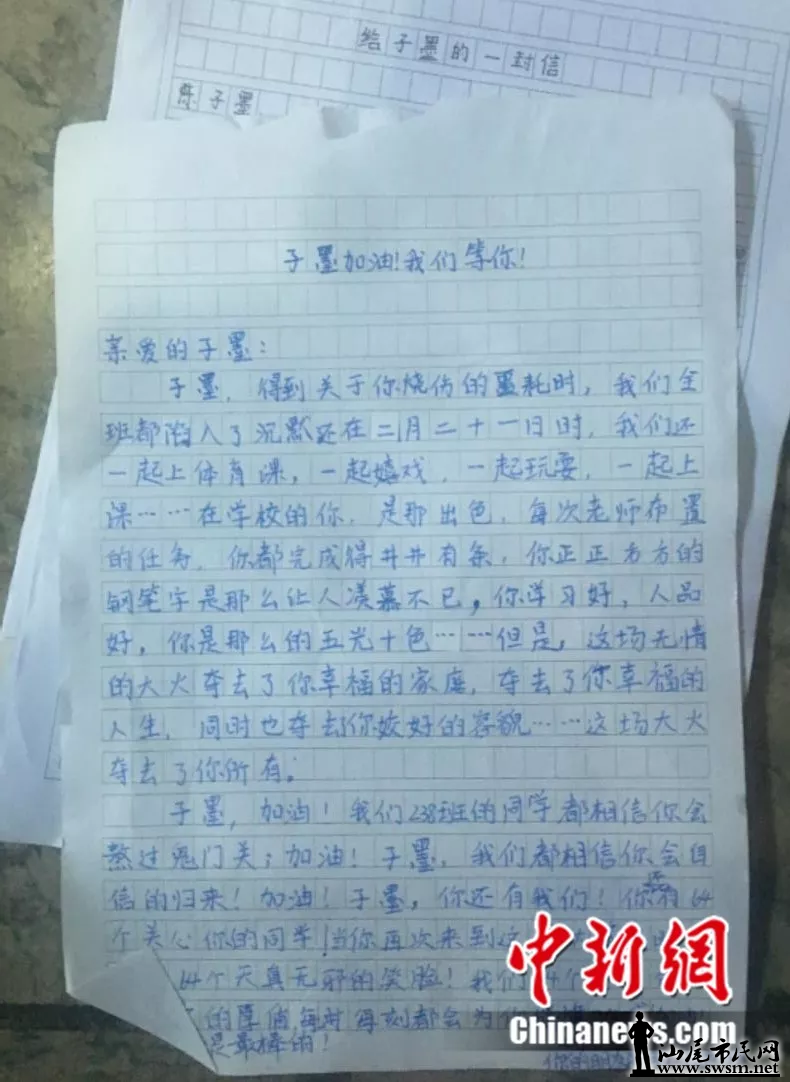 给子墨的一封信
子墨
子墨加油!我们等你!
亲爱的子墨:
子墨,得到关于你烧伤的噩耗时,我们全
班都陷入了沉默还在二月二十一日时,我们还
一起上体育课,一起嬉戏,一起玩耍,一起上
课……在学校的你,是那出色,每次老师布置
的任务,你都完成得井井有条,你正正方方的
钢笔字是那么让人羡慕不已,你学习好,人品
好,你是那么的五光十色……但是,这场无情
的大火夺去了你幸福的家庭,夺去了你幸福的
人生,同时也夺去你姣好的容貌……这场大火
夺去了你所有。
子墨,加油!我们238班的同学都相信你会
熬过鬼门关;加油!子墨,我们都相信你会自
信的归来!加油!子墨,你还有我们!你还有64
个关心你的同学!当你再次来到这
64个天真无邪的笑脸!我们
的 每时每刻都会为你
是最棒的!
你的朋友
中新網
Chinanews.com
汕尾市民网
www.swsm.net